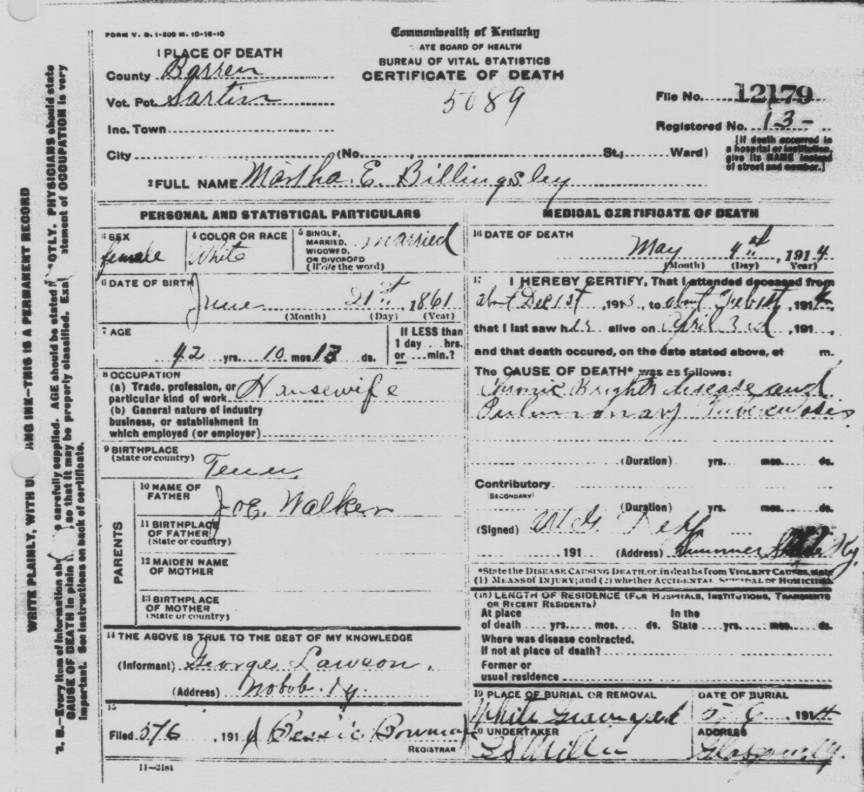 FORM V. S. 1-500 M. 10-18-10
Commonwealth of Kentucky
ATE BOARD OF HEALTH
BUREAU OF VITAL STATISTICS
CERTIFICATE OF DEATH
5089
1 PLACE OF DEATH
County Barren
Vot. Pct. Sartin
Inc. Town
City (No. St.; Ward)
File No. 12179
Registered No. 13-
[If death occurred in
a hospital or institution,
give its NAME instead
of street and number.]
2 FULL NAME Martha E. Billingsley
PERSONAL AND STATISTICAL PARTICULARS
3 SEX
female
4 COLOR OR RACE
White
5 SINGLE,
MARRIED,
WIDOWED,
OR DIVORCED
(Write the word)
Married
6 DATE OF BIRTH
June 21st, 1861
(Month) (Day) (Year)
7 AGE
42 yrs. 10 mos. 13 ds.
If LESS than
1 day hrs.
or min.?
8 OCCUPATION
(a) Trade, profession, or
particular kind of work Housewife
(b) General nature of industry
business, or establishment in
which employed (or employer)
9 BIRTHPLACE
(State or country) Tenn
PARENTS
10 NAME OF
FATHER Jo E. Walker
11 BIRTHPLACE
OF FATHER
(State or country)
12 MAIDEN NAME
OF MOTHER
13 BIRTHPLACE
OF MOTHER
(State or country)
14 THE ABOVE IS TRUE TO THE BEST OF MY KNOWLEDGE
(Informant) George Lawson.
(Address) Nobob. Ky.
15
Filed 5/6, 191 Bessie Bowman
REGISTRAR
11-2184
MEDICAL CERTIFICATE OF DEATH
16 DATE OF DEATH
May 4th, 1914
(Month) (Day) Year)
17 I HEREBY CERTIFY, That I attended deceased from
about Dec 1st, 1913, to about Feb 1st, 1914
that I last saw her alive on April 3rd, 191
and that death occured, on the date stated above, at m.
The CAUSE OF DEATH* was as follows:
Chronic Brights disease and
Pulmonary Tuberculosis
(Duration) yrs. mos. ds.
Contributory
(SECONDARY)
(Duration) yrs. mos. ds.
(Signed)
191 (Address) Summer Shade Ky.
*State the DISEASE CAUSING DEATH, or in deaths from VIOLENT CAUSES, state
(1) MEANS OF INJURY; and (2) whether ACCIDENTAL, SUICIDAL or HOMICIDAL
(18) LENGTH OF RESIDENCE (FOR HOSPITALS, INSTITUTIONS, TRANSIENTS
OR RECENT RESIDENTS)
At place In the
of death yrs. mos. ds. State yrs. mos. ds.
Where was disease contracted,
if not at place of death?
Former or
usual residence
19 PLACE OF BURIAL OR REMOVAL
White
DATE OF BURIAL
5/6 1914
20 UNDERTAKER
ADDRESS
Glasgow Ky.
WRITE PLAINLY, WITH U ING INK—THIS IS A PERMANENT RECORD
B.—Every item of information sh e carefully supplied. AGE should be stated OTLY. PHYSICIANS should state
CAUSE OF DEATH in plain so that it may be properly classified. Exa tement of OCCUPATION is very
important. See instructions on back of certificate.